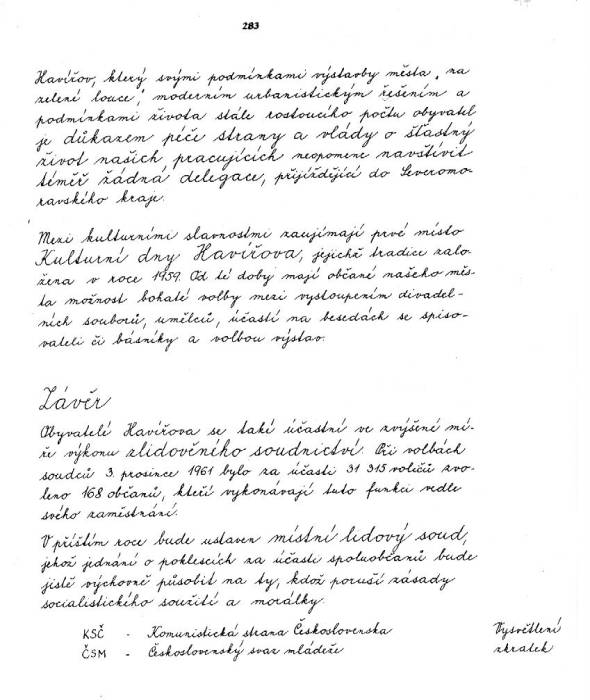 283
Havířov, který svými podmínkami výstavby města „na
zelené louce", moderním urbanistickým řešením a
podmínkami života stále rostoucího počtu obyvatel
je důkazem péče strany a vlády o šťastný
život našich pracujících neopomene navštívit
téměř žádná delegace, přijíždějící do Severomo-
ravského kraje.
Mezi kulturními slavnostmi zaujímají prvé místo
Kulturní dny Havířova, jejichž tradice zalo-
žena v roce 1959. Od té doby mají občané našeho měs-
ta možnost bohaté volby mezi vystoupením divadel-
ních souborů, umělců, účastí na besedách se spiso-
vateli či básníky a volbou výstav.
Závěr
Obyvatelé Havířova se také účastní ve zvýšené mí-
ře výkonu zlidověného soudnictví. Při volbách
soudců 3. prosince 1961 bylo za účasti 31 315 voličů zvo-
leno 168 občanů, kteří vykonávají tuto funkci vedle
svého zaměstnání.
V příštím roce bude ustaven místní lidový soud,
jehož jednání o poklescích za účasti spoluobčanů bude
jistě výchovně působit na ty, kdož poruší zásady
socialistického soužití a morálky.
KSČ - Komunistická strana Československa Vysvětlení
ČSM - Československý svaz mládeže zkratek